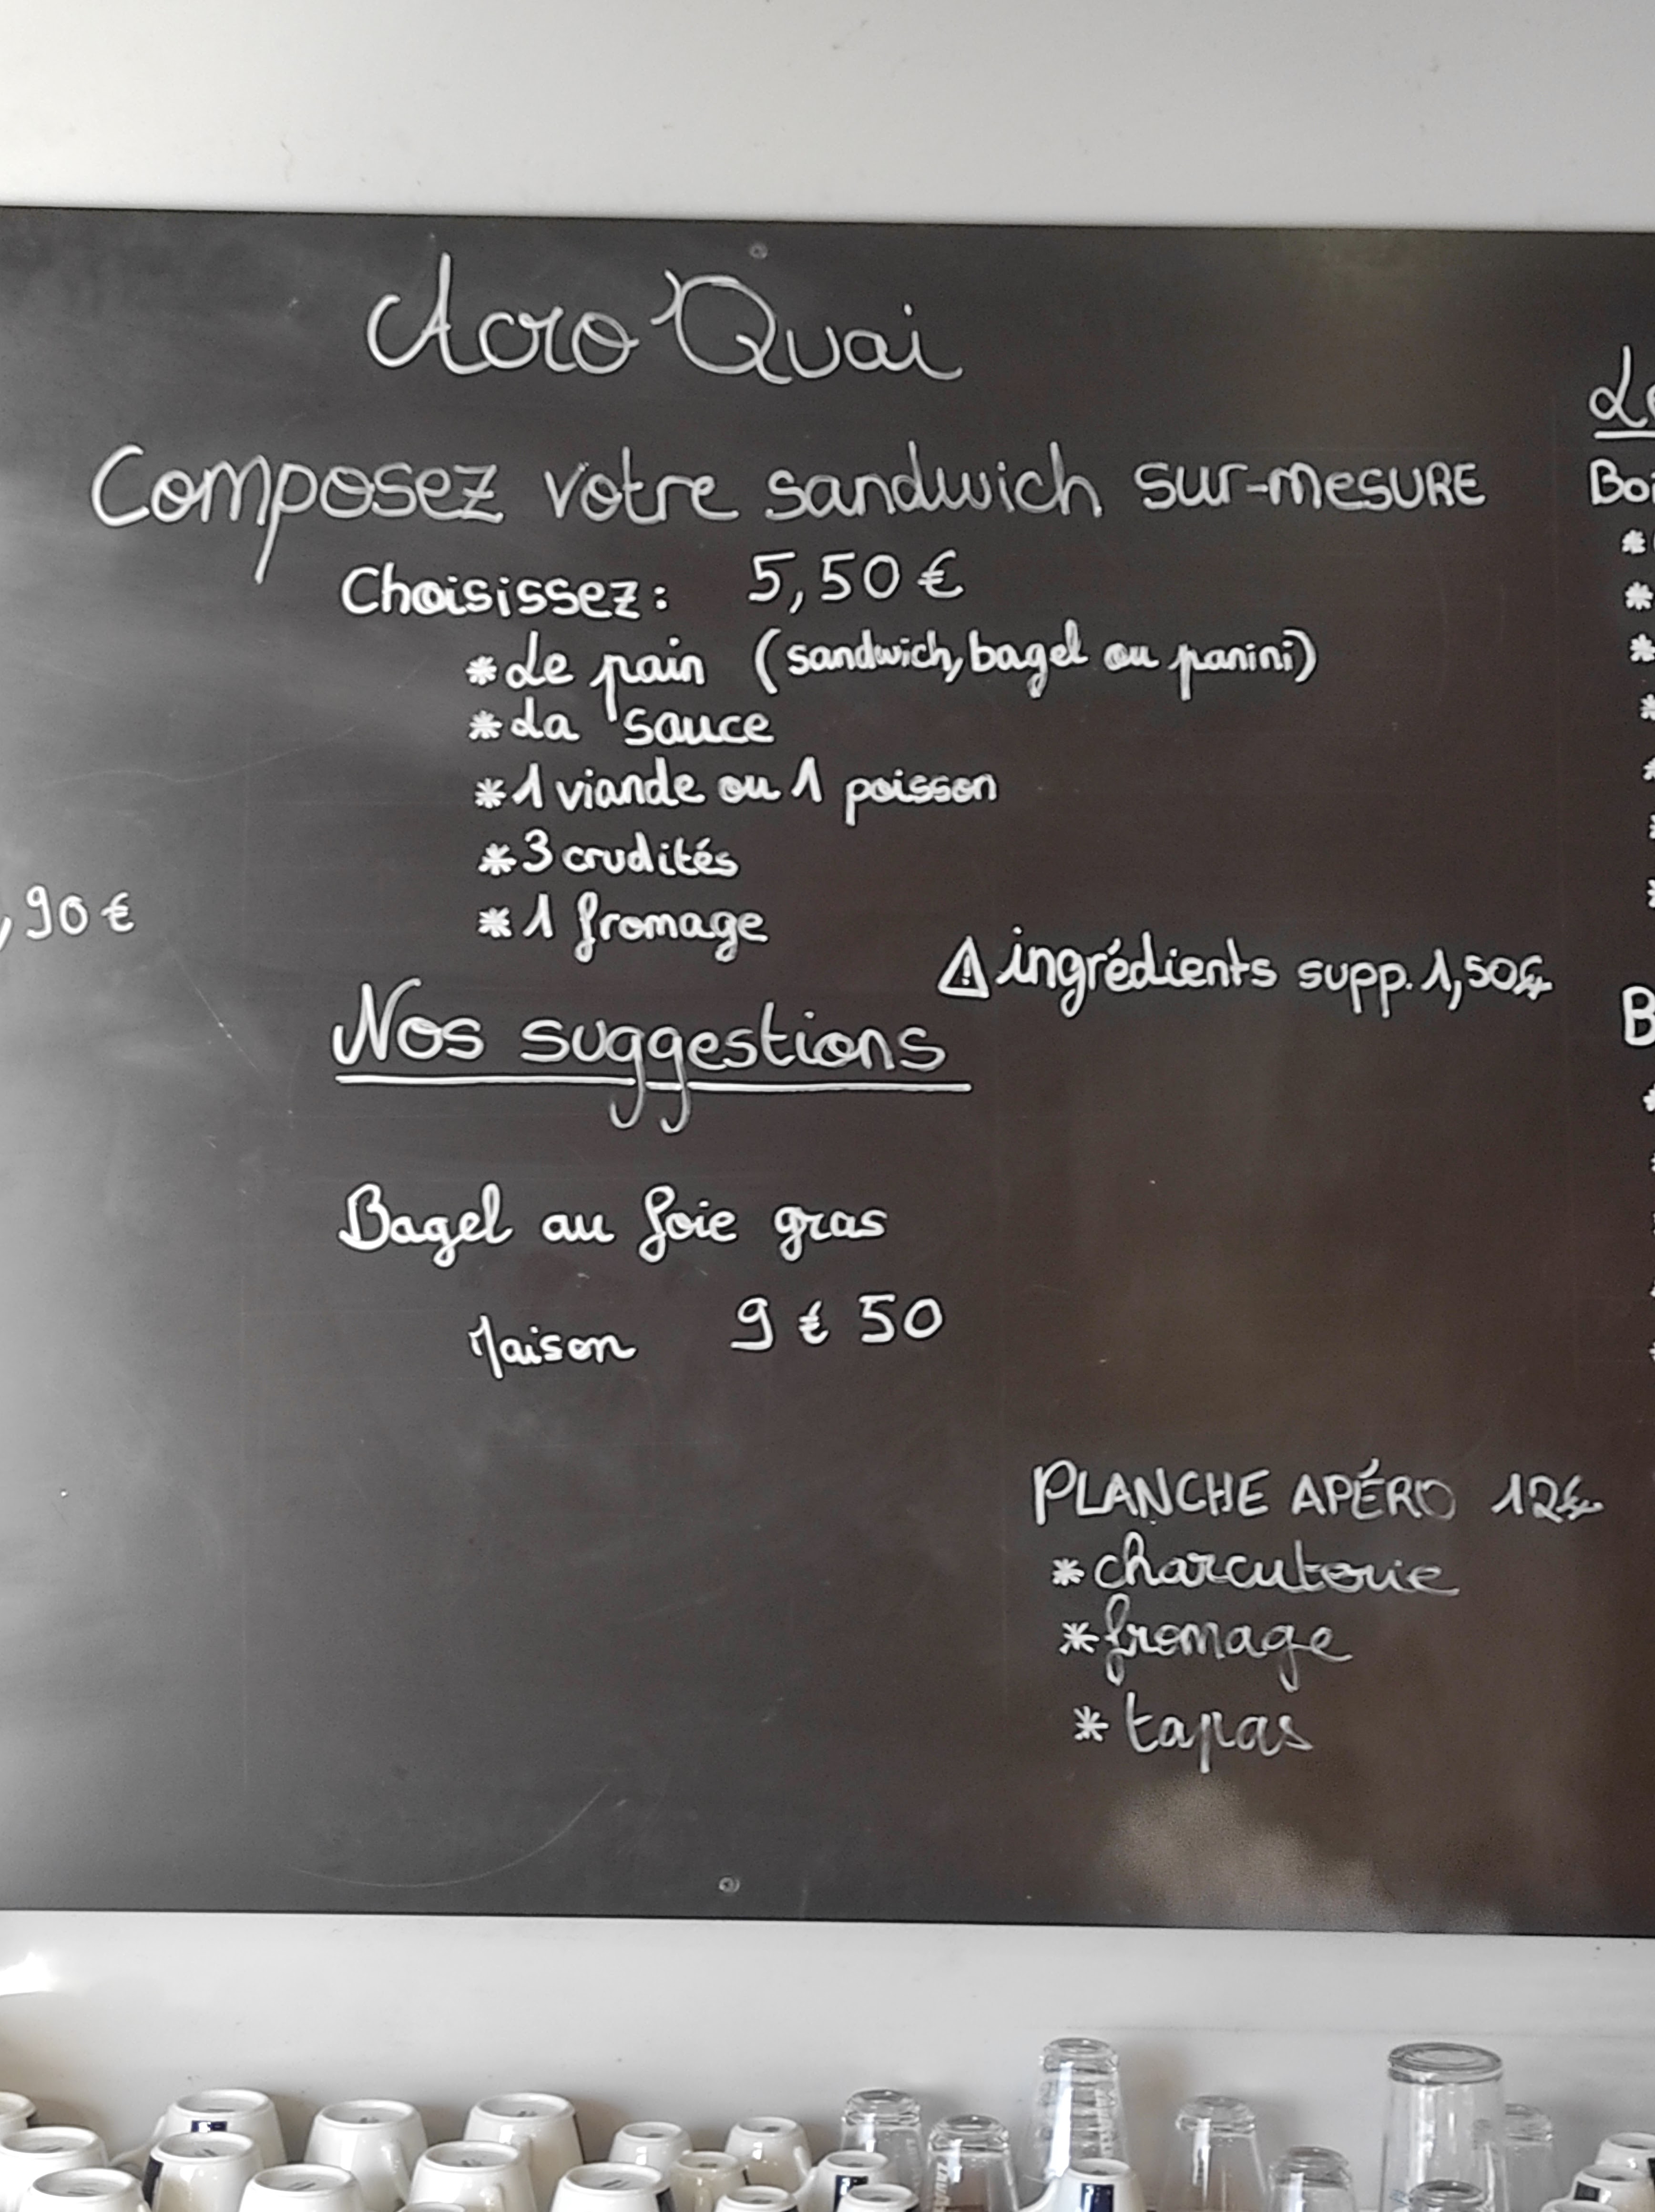 Acro'Quai
Composez votre sandwich sur-mesure
Choisissez: 5,50 €
* Le pain (sandwich, bagel ou panini)
* La sauce
* 1 viande ou 1 poisson
* 3 crudités
* 1 fromage
,90 €
⚠ ingrédients supp. 1,50€
Nos suggestions
Bagel au foie gras
Maison 9 € 50
PLANCHE APÉRO 12€
* charcuterie
* fromage
* tapas
Le
Boi
B